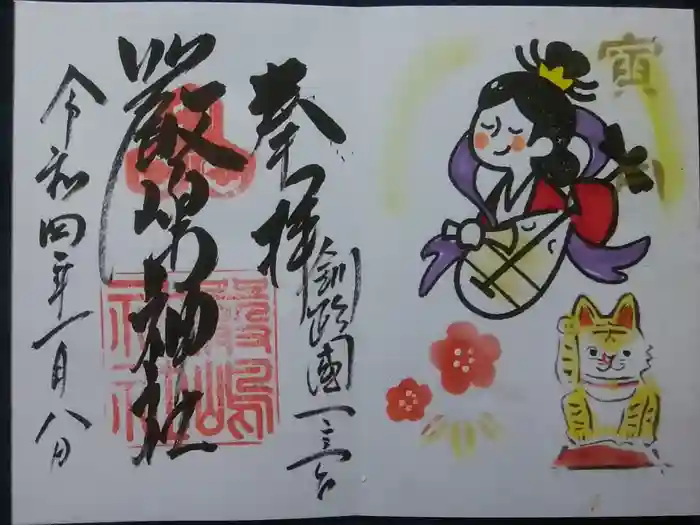 奉拝
釧路國一之宮
厳島神社
嚴嶋神社
令和四年一月八日
寅